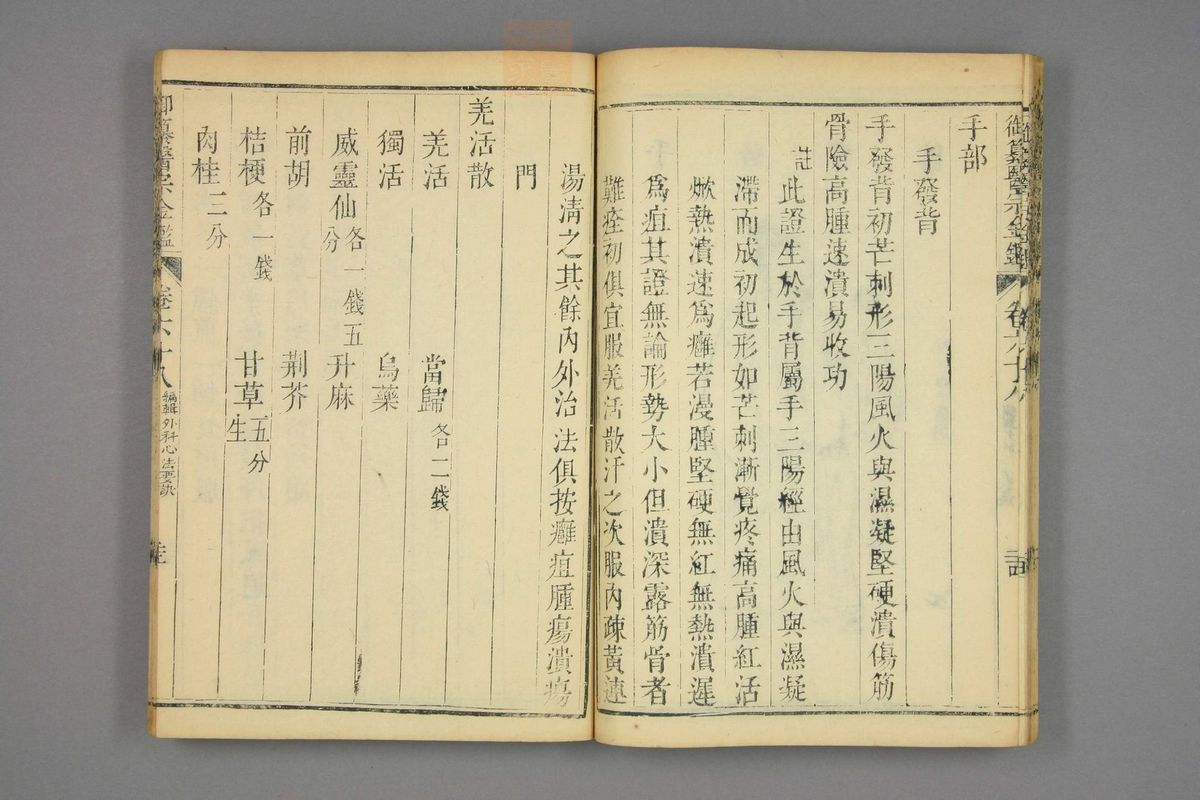 御纂醫宗金鑑 卷六十八
手部
手發背
手發背初芒刺形三陽風火與濕凝堅硬潰傷筋
骨險高腫速潰易收功
註此證生於手背屬手三陽經由風火與濕凝
滯而成初起形如芒刺漸覺疼痛高腫紅活
焮熱潰速爲癰若漫腫堅硬無紅無熱潰遲
爲疽其證無論形勢大小但潰深露筋骨者
難痊初俱宜服羌活散汗之次服內疎黃連
湯清之其餘內外治法俱按癰疽腫瘍潰瘍
門
羌活散
羌活 當歸各二錢
獨活 烏藥
威靈仙各一錢五分 升麻
前胡 荆芥
桔梗各一錢 甘草五分生
肉桂三分
御纂醫宗金鑑 卷六十八 編輯外科心法要訣